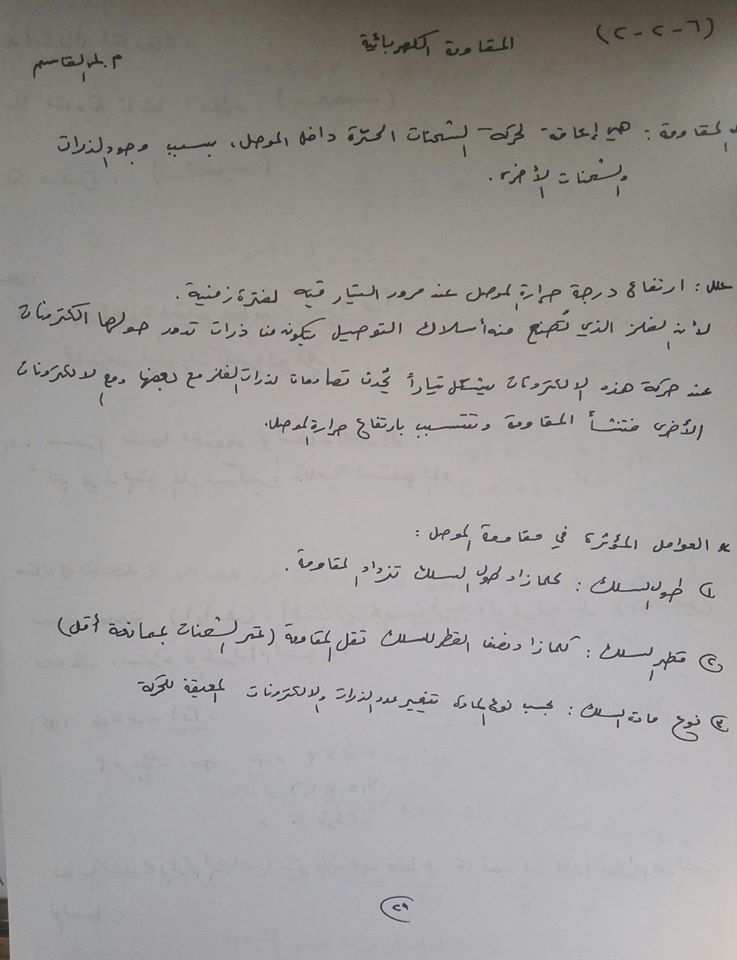 (٦-٢-٢) المقاومة الكهربائية
م. بلقاسم
المقاومة : هي إعاقة لحركة الشحنات الحرّة داخل الموصل، بسبب وجود الذرات
والشحنات الأخرى.
علل : ارتفاع درجة حرارة الموصل عند مرور التيار فيه لفترة زمنية.
لأن الفلز الذي تُصنع منه أسلاك التوصيل يتكون من ذرات تدور حولها الكترونات
عند حركة هذه الإلكترونات بشكل تياراً تُحدث تصادمات لذرات الفلز مع بعضها ومع الالكترونات
الأخرى فتنشأ المقاومة وتتسبب بارتفاع حرارة الموصل.
* العوامل المؤثرة في مقاومة الموصل :
١) طول السلك : كلما زاد طول السلك تزداد المقاومة.
٢) قطر السلك : كلما زاد نصف القطر للسلك تقل المقاومة (لتمر الشحنات بممانعة أقل)
٣) نوع مادة السلك : بحسب نوع المادة تتغير عدد الذرات والالكترونات المعيقة للحركة
٢٩